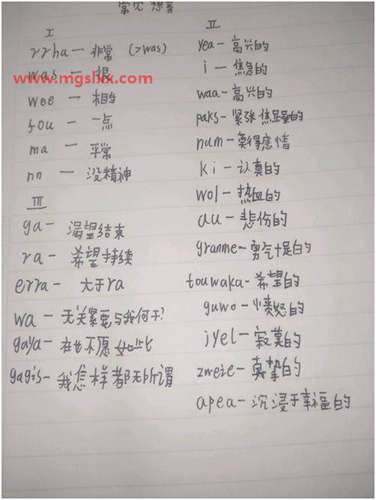 常见想音
I
rrha — 非常 (>was)
was — 很
wee — 相当
fou — 一点
ma — 平常
nn — 没精神
III
ga — 渴望结束
ra — 希望持续
erra — 大于ra
wa — 无关紧要与我何干?
gaya — 在也不愿如此
gagis — 我怎样都无所谓
II
yea — 高兴的
i — 焦急的
waa — 高兴的
paks — 紧张焦虑的
num — 莫得感情
ki — 认真的
wol — 热血的
au — 悲伤的
granme — 勇气十足的
touwaka — 希望的
guwo — 愤怒的
jyel — 寂寞的
zweie — 真挚的
apea — 沉浸于幸福的
www.mgshxx.com